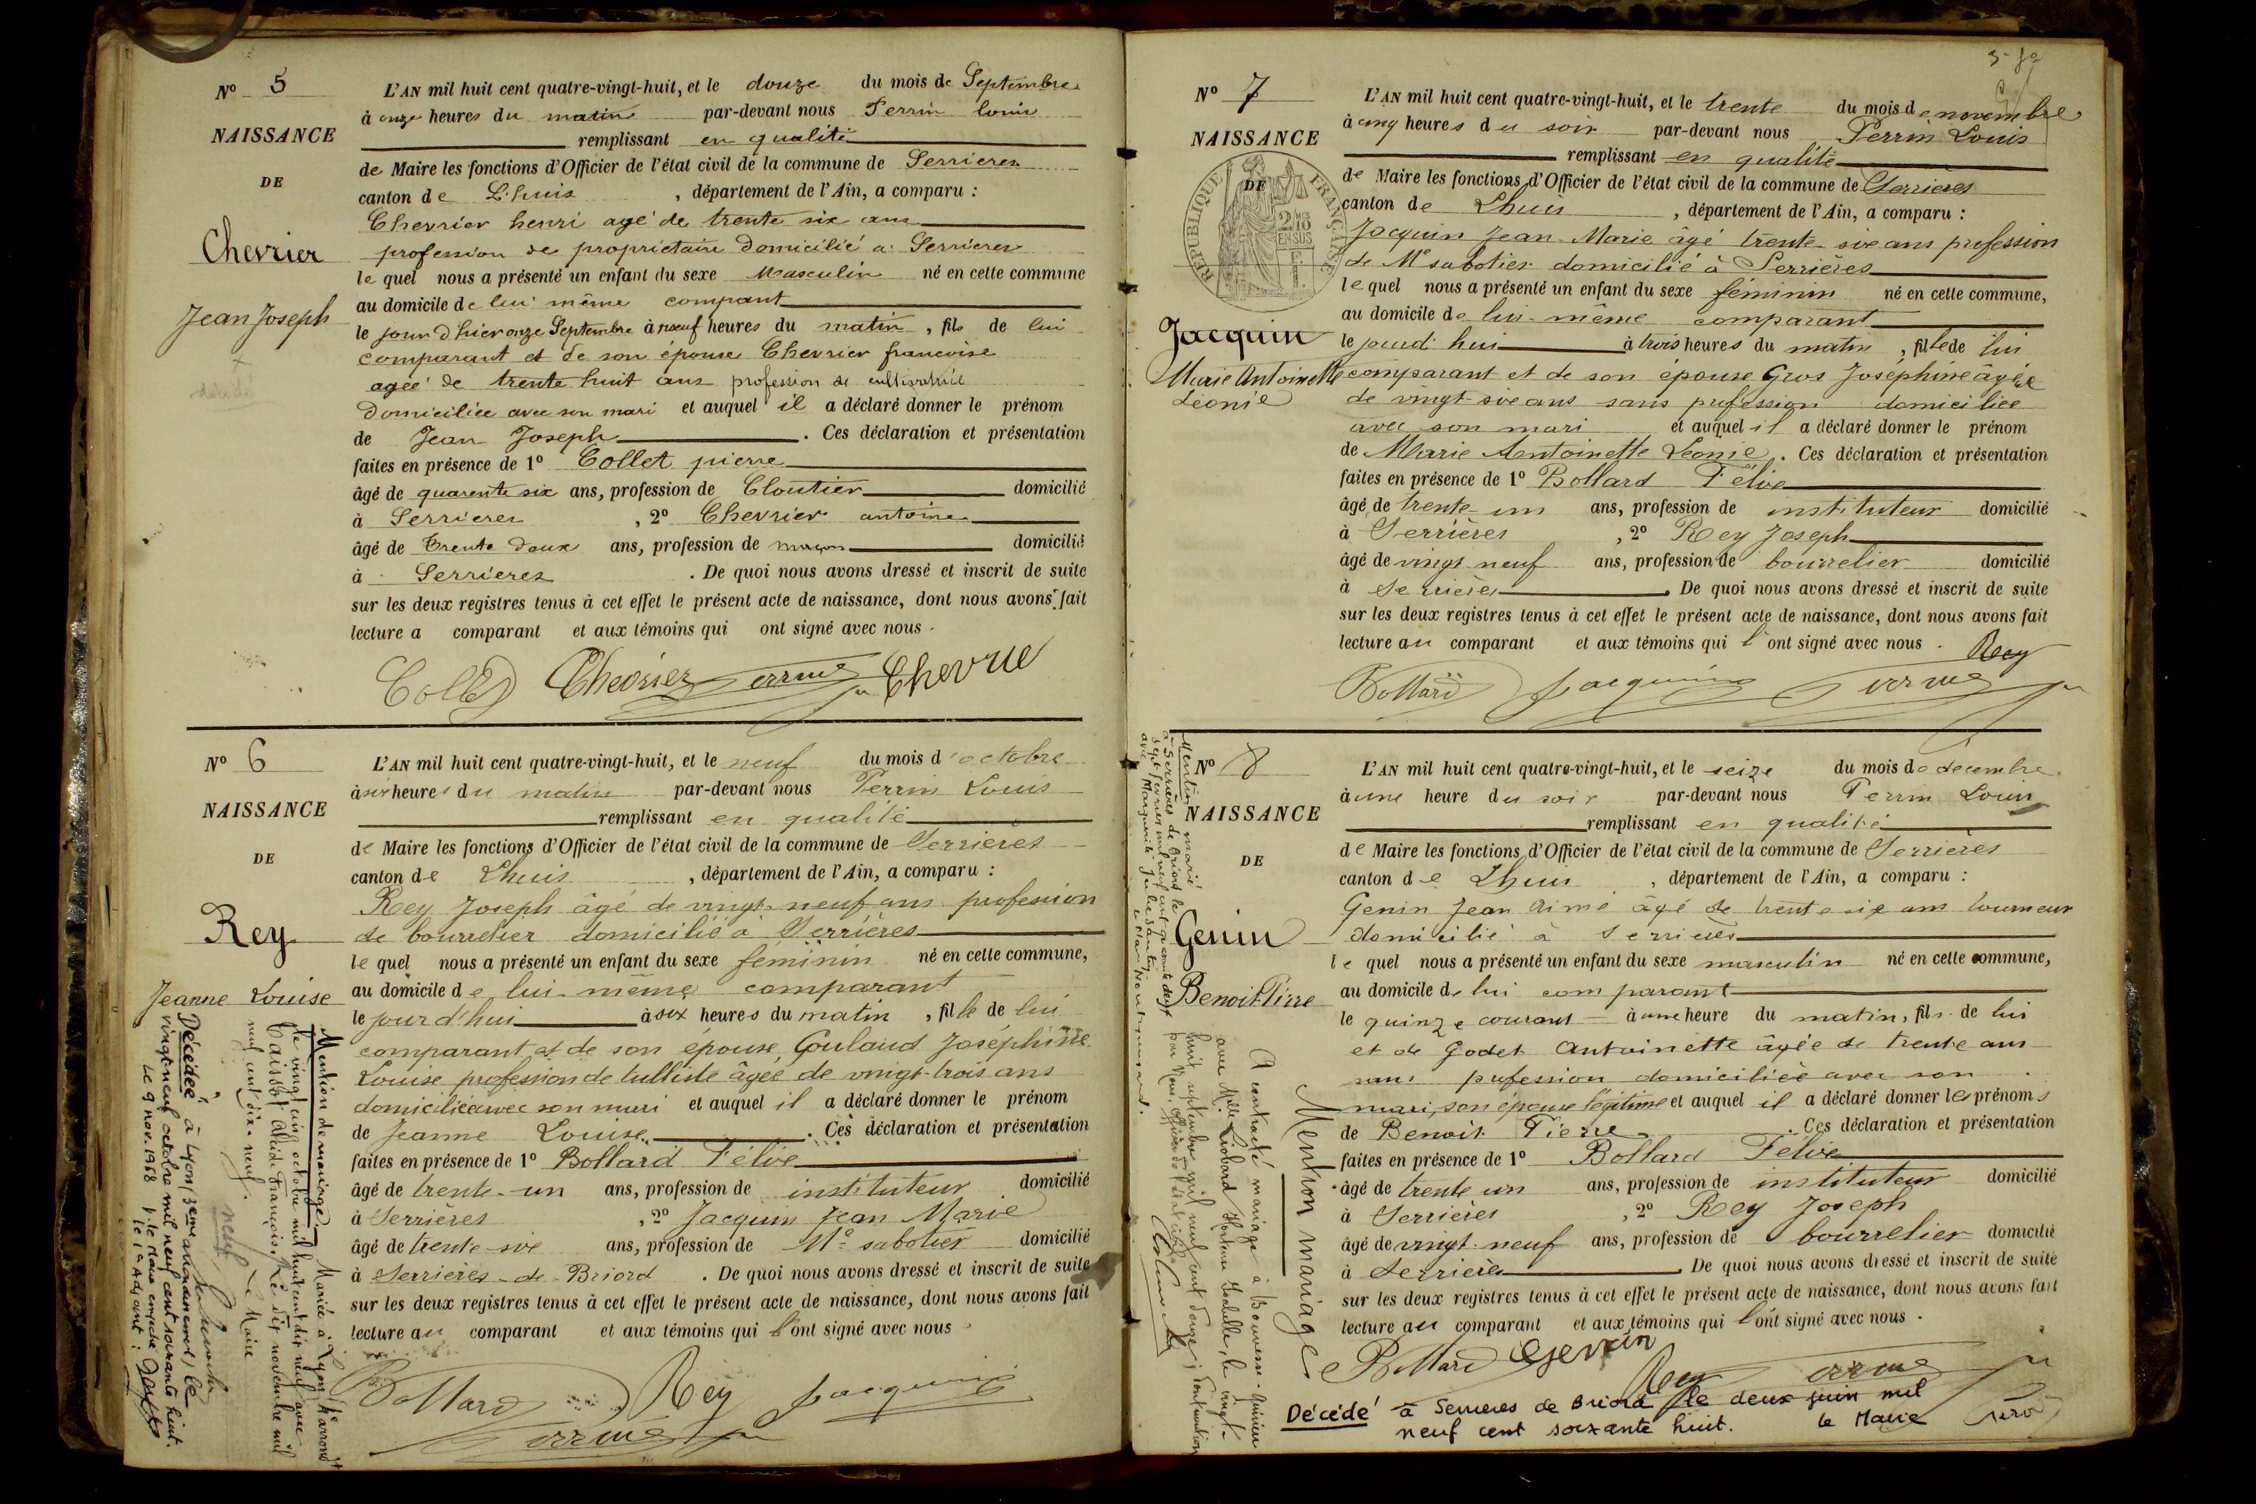 Nº 5
NAISSANCE
DE
Chevrier
Jean Joseph
L'AN mil huit cent quatre-vingt-huit, et le douze du mois de Septembre
à onze heures du matin par-devant nous Perrin louis
remplissant en qualité
de Maire les fonctions d'Officier de l'état civil de la commune de Serrieres
canton de Lhuis, département de l'Ain, a comparu :
Chevrier henri agé de trente six ans
profession de propriétaire Domicilié a Serrieres
le quel nous a présenté un enfant du sexe Masculin né en cette commune
au domicile de lui même compant
le jour d'hier onze Septembre à neuf heures du matin, fils de lui
comparant et de son épouse Chevrier francoise
agée de trente huit ans profession de cultivatrice
Domiciliée avec son mari et auquel il a déclaré donner le prénom
de Jean Joseph. Ces déclaration et présentation
faites en présence de 1º Collet pierre
âgé de quarente six ans, profession de Cloutier domicilié
à Serrieres, 2º Chevrier antoine
âgé de Trente Deux ans, profession de maçon domicilié
à Serrieres. De quoi nous avons dressé et inscrit de suite
sur les deux registres tenus à cet effet le présent acte de naissance, dont nous avons fait
lecture a comparant et aux témoins qui ont signé avec nous.
Collet Chevrier Perrin Chevrie
Nº 6
NAISSANCE
DE
Rey
Jeanne Louise
L'AN mil huit cent quatre-vingt-huit, et le neuf du mois d'octobre
à six heures du matin par-devant nous Perrin Louis
remplissant en qualité
de Maire les fonctions d'Officier de l'état civil de la commune de Serrières
canton de Lhuis, département de l'Ain, a comparu :
Rey Joseph âgé de vingt-neuf ans profession
de bourrelier domicilié à Serrières
le quel nous a présenté un enfant du sexe féminin né en cette commune,
au domicile de lui-même comparant
le jour d'hui à six heures du matin, fille de lui
comparant et de son épouse Goulaud Joséphine
Louise profession de tulliste âgée de vingt-trois ans
domiciliée avec son mari et auquel il a déclaré donner le prénom
de Jeanne Louise. Ces déclaration et présentation
faites en présence de 1º Bollard Félix
âgé de trente-un ans, profession de instituteur domicilié
à Serrières, 2º Jacquin Jean Marie
âgé de trente-six ans, profession de Md sabotier domicilié
à Serrières-de-Briord. De quoi nous avons dressé et inscrit de suite
sur les deux registres tenus à cet effet le présent acte de naissance, dont nous avons fait
lecture au comparant et aux témoins qui l'ont signé avec nous
Bollard Rey Jacquin
Perrin
Mention de mariage Mariée à Lyon
le vingt cinq octobre mil huit cent dix neuf avec
François. Le dix novembre mil
neuf cent dix neuf.
Le Maire
Décédée à Lyon (3eme arrondissement) le
vingt neuf octobre mil neuf cent soixante huit.
Le 9 nov. 1968 p. le Maire empêché
le 1er Adjoint :
Nº 7
NAISSANCE
DE
RÉPUBLIQUE FRANÇAISE
Jacquin
Marie Antoinette
Léonie
L'AN mil huit cent quatre-vingt-huit, et le trente du mois de novembre
à cinq heures du soir par-devant nous Perrin Louis
remplissant en qualité
de Maire les fonctions d'Officier de l'état civil de la commune de Serrières
canton de Lhuis, département de l'Ain, a comparu :
Jacquin Jean-Marie âgé trente-six ans profession
de Md sabotier domicilié à Serrières
le quel nous a présenté un enfant du sexe féminin né en cette commune,
au domicile de lui-même comparant
le jourd'hui à trois heures du matin, fille de lui
comparant et de son épouse Gros Joséphine âgée
de vingt-six ans sans profession domiciliée
avec son mari et auquel il a déclaré donner le prénom
de Marie Antoinette Léonie. Ces déclaration et présentation
faites en présence de 1º Bollard Félix
âgé de trente-un ans, profession de instituteur domicilié
à Serrières, 2º Rey Joseph
âgé de vingt neuf ans, profession de bourrelier domicilié
à Serrières. De quoi nous avons dressé et inscrit de suite
sur les deux registres tenus à cet effet le présent acte de naissance, dont nous avons fait
lecture au comparant et aux témoins qui l'ont signé avec nous. Rey
Bollard Jacquin Perrin
Nº 8
NAISSANCE
DE
Genin
Benoit Pierre
L'AN mil huit cent quatre-vingt-huit, et le seize du mois de décembre
à une heure du soir par-devant nous Perrin Louis
remplissant en qualité
de Maire les fonctions d'Officier de l'état civil de la commune de Serrières
canton de Lhuis, département de l'Ain, a comparu :
Genin Jean Aimé âgé de trente six ans tourneur
domicilié à Serrières
le quel nous a présenté un enfant du sexe masculin né en cette commune,
au domicile de lui comparant
le quinze courant à une heure du matin, fils de lui
et de Godet Antoinette âgée de trente ans
sans profession domiciliée avec son
mari, son épouse légitime et auquel il a déclaré donner les prénoms
de Benoit Pierre. Ces déclaration et présentation
faites en présence de 1º Bollard Félix
âgé de trente un ans, profession de instituteur domicilié
à Serrières, 2º Rey Joseph
âgé de vingt-neuf ans, profession de bourrelier domicilié
à Serrières. De quoi nous avons dressé et inscrit de suite
sur les deux registres tenus à cet effet le présent acte de naissance, dont nous avons fait
lecture au comparant et aux témoins qui l'ont signé avec nous.
Bollard Genin
Rey Perrin
Décédé à Serrieres de Briord le deux juin mil
neuf cent soixante huit. le Maire
Mention mariage
A contracté mariage à
avec Melle Liobard Hortense Isabelle, le vingt-
huit septembre mil neuf cent douze;
par Nous, officier de l'état civil
Mention marié
à Serrières de Briord le
sept février mil neuf cent quarante
avec Marguerite